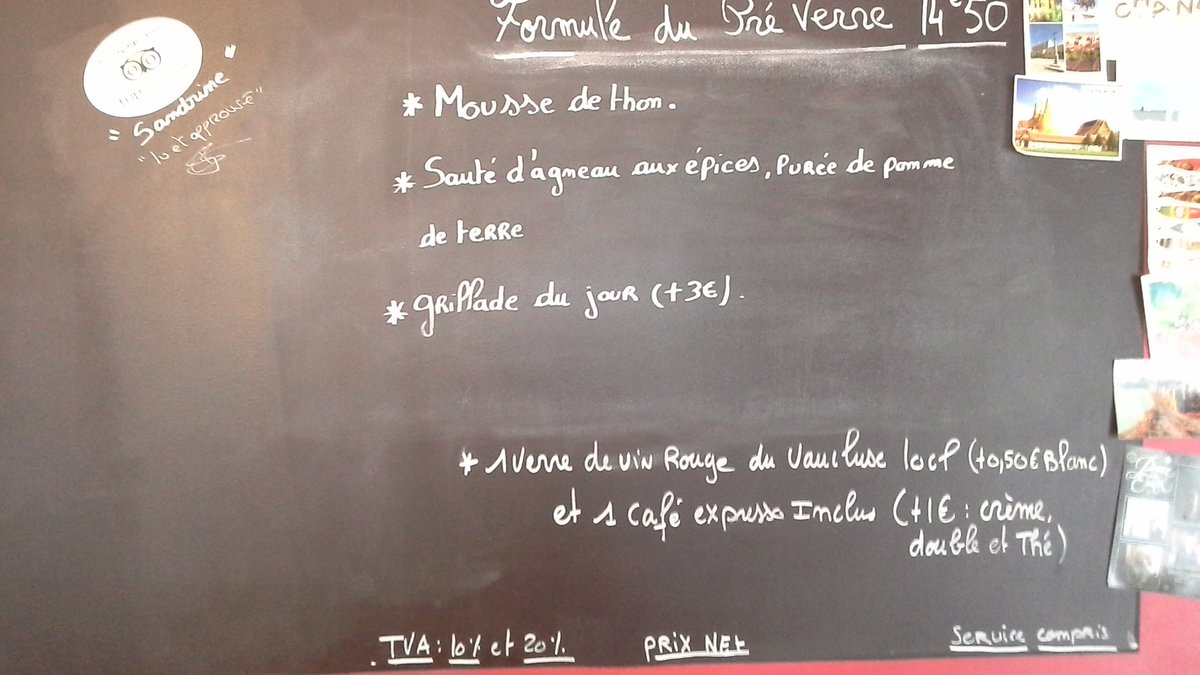 Formule du Pré Verre 14€50
* Mousse de thon.
* Sauté d'agneau aux épices, Purée de pomme
de terre
* Grillade du jour (+3€).
* 1 verre de vin Rouge du Vaucluse 10cl (+0,50€ Blanc)
et 1 café expresso Inclus (+1€ : crème,
double et Thé)
TVA : 10% et 20%. PRIX NEt Service compris
"Sandrine"
"lu et approuvé"